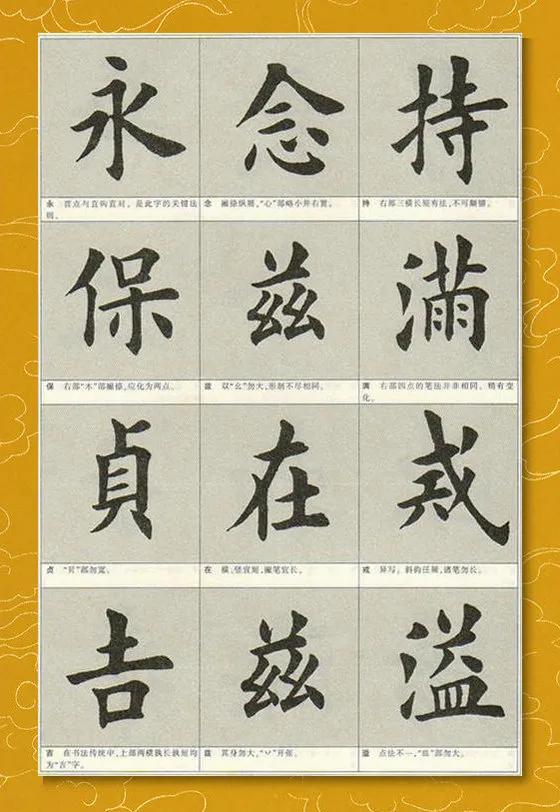 持
持 右部三横长短有法,不可颠错。
滿
满 右部四点的笔法并非相同,稍有变
化。
戒
戒 异写;斜钩任展,诸笔勿长。
溢
溢 点法不一,“皿”部勿大。
念
念 撇捺纵展,“心”部略小并右置。
兹
兹 以“幺”勿大,形制不尽相同。
在
在 横、竖宜短,撇笔宜长。
兹
兹 其身勿大,“丷”开张。
永
永 首点与直钩直对,是此字的关键法
则。
保
保 右部“木”部撇捺,应化为两点。
貞
贞 “贝”部勿宽。
吉
吉 在书法传统中,上部两横孰长孰短均
为“吉”字。